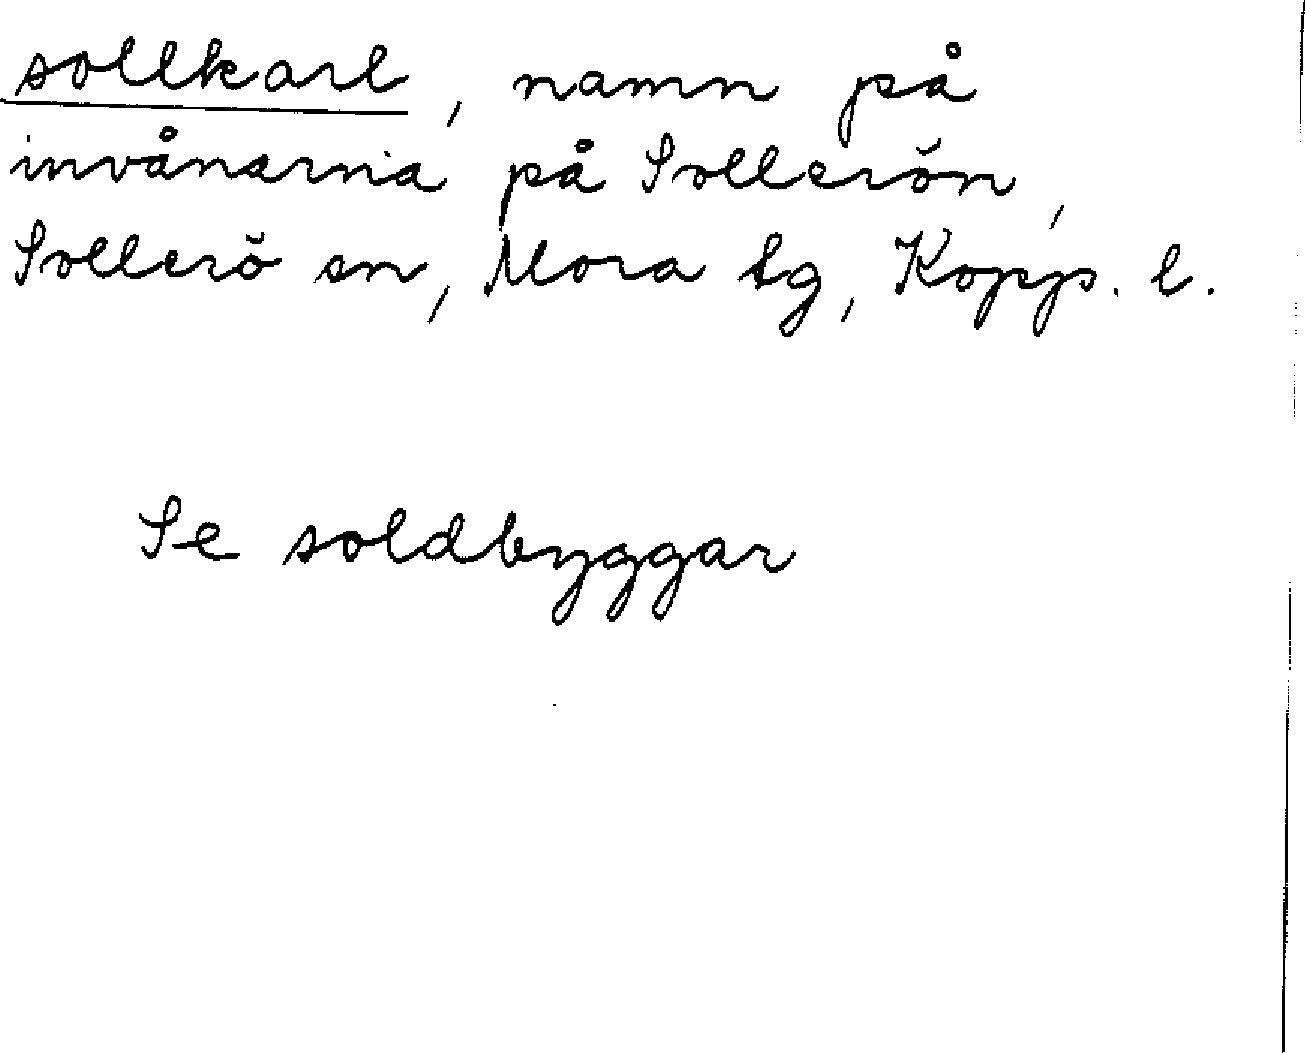 sollkarl, namn på
invånarna på Sollerön,
Sollerö sn, Mora tg, Kopp. l.
Se soldbyggar